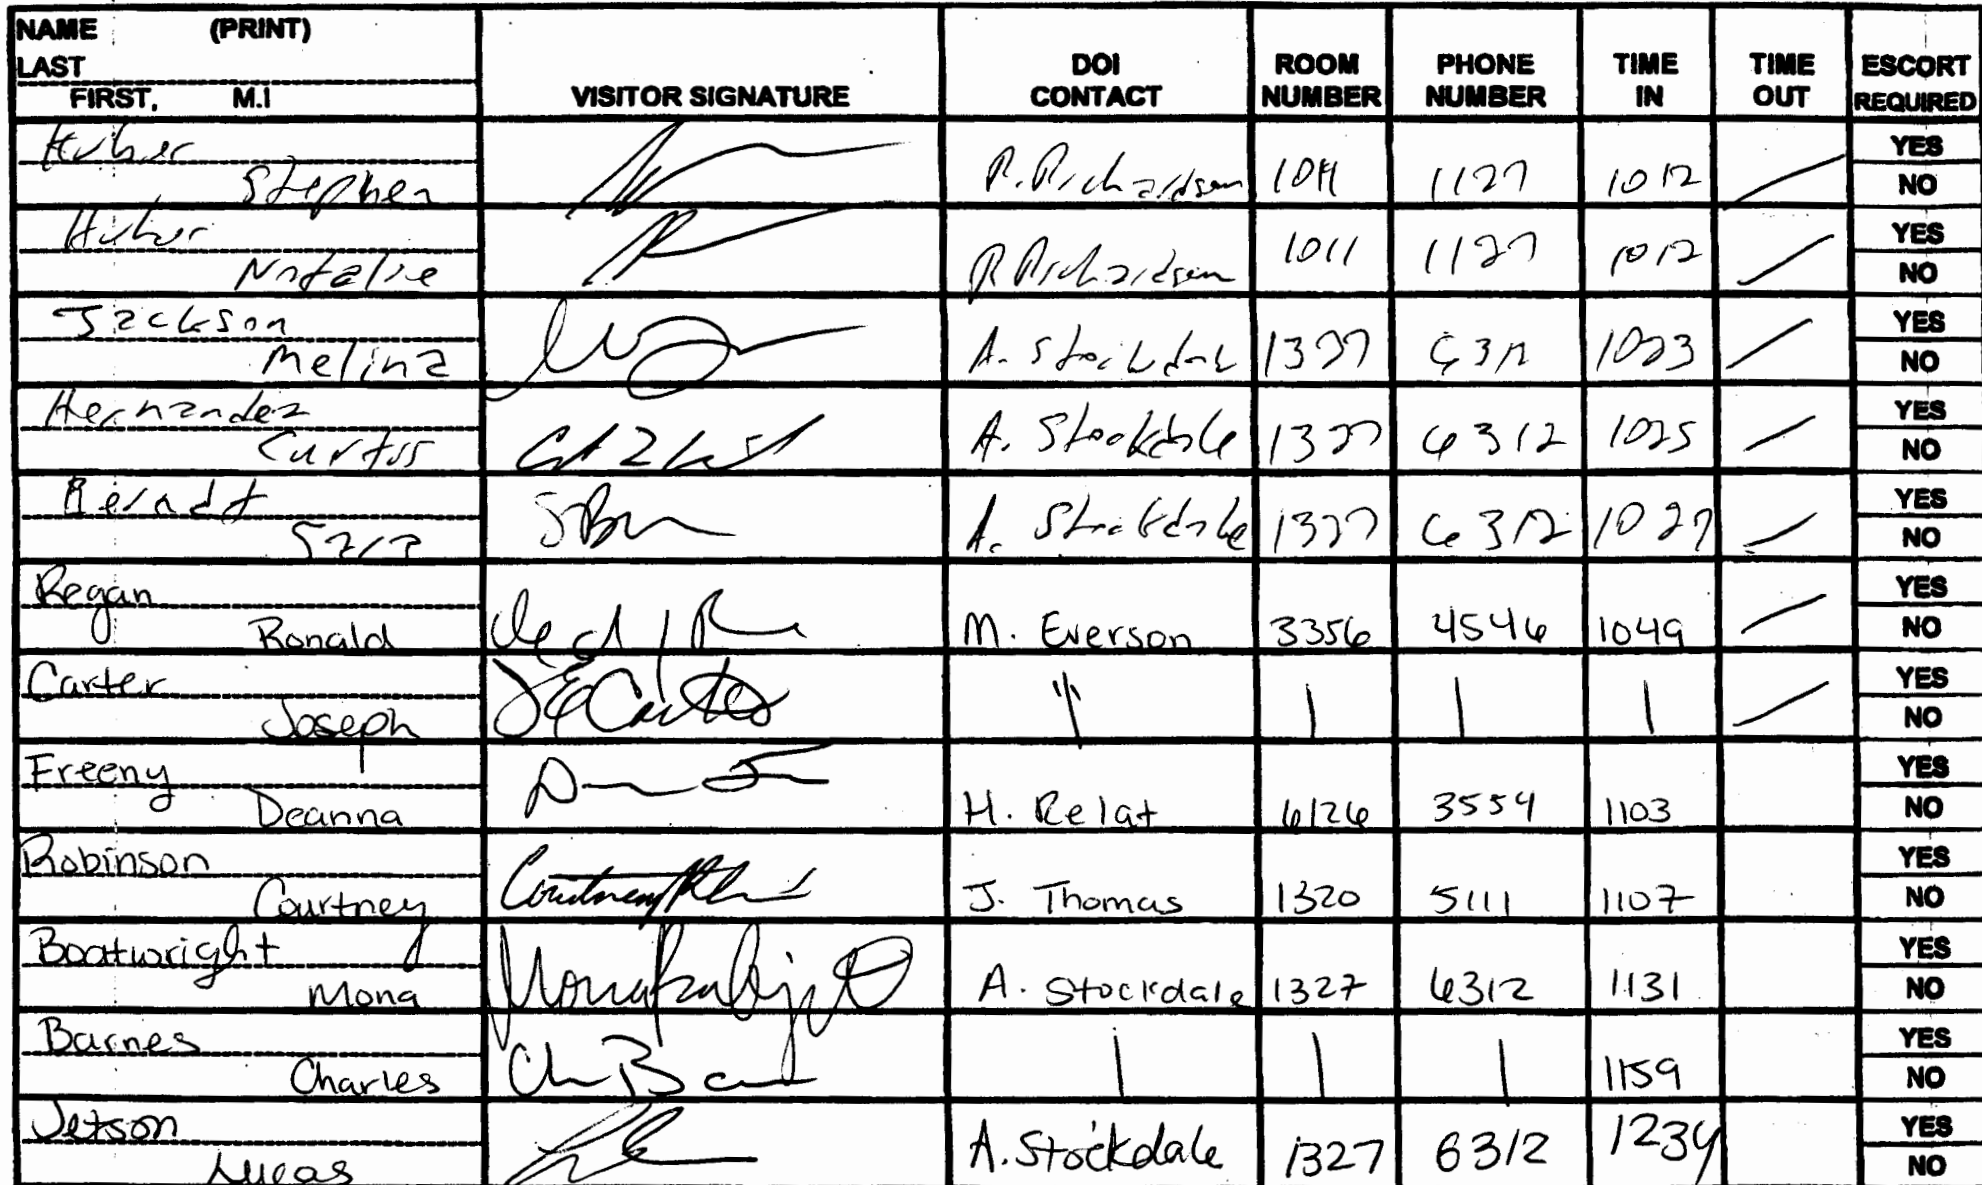 NAME (PRINT)
LAST
FIRST, M.I
VISITOR SIGNATURE
DOI CONTACT
ROOM NUMBER
PHONE NUMBER
TIME IN
TIME OUT
ESCORT REQUIRED
Huber
Stephen
R. Richardson 1011 1127 1012
YES
NO
Huber
Natalie
R Richardson 1011 1127 1012
YES
NO
Jackson
Melina
A. Stockdale 1327 6312 1023
YES
NO
Hernandez
Curtis
A. Stockdale 1327 6312 1025
YES
NO
Berndt
Sara
A. Stockdale 1327 6312 1027
YES
NO
Regan
Ronald
M. Everson 3356 4546 1049
YES
NO
Carter
Joseph
JECarter
YES
NO
Freeny
Deanna
H. Relat 6126 3554 1103
YES
NO
Robinson
Courtney
Courtney
J. Thomas 1320 5111 1107
YES
NO
Boatwright
Mona
A. Stockdale 1327 6312 1131
YES
NO
Barnes
Charles
1159
YES
NO
Jetson
Lucas
A. Stockdale 1327 6312 1234
YES
NO